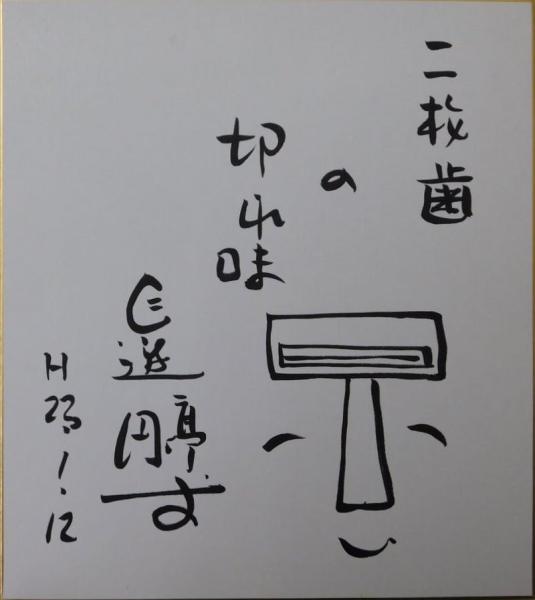 二枚歯
の
切れ味
三遊亭円丈
H23.1.12